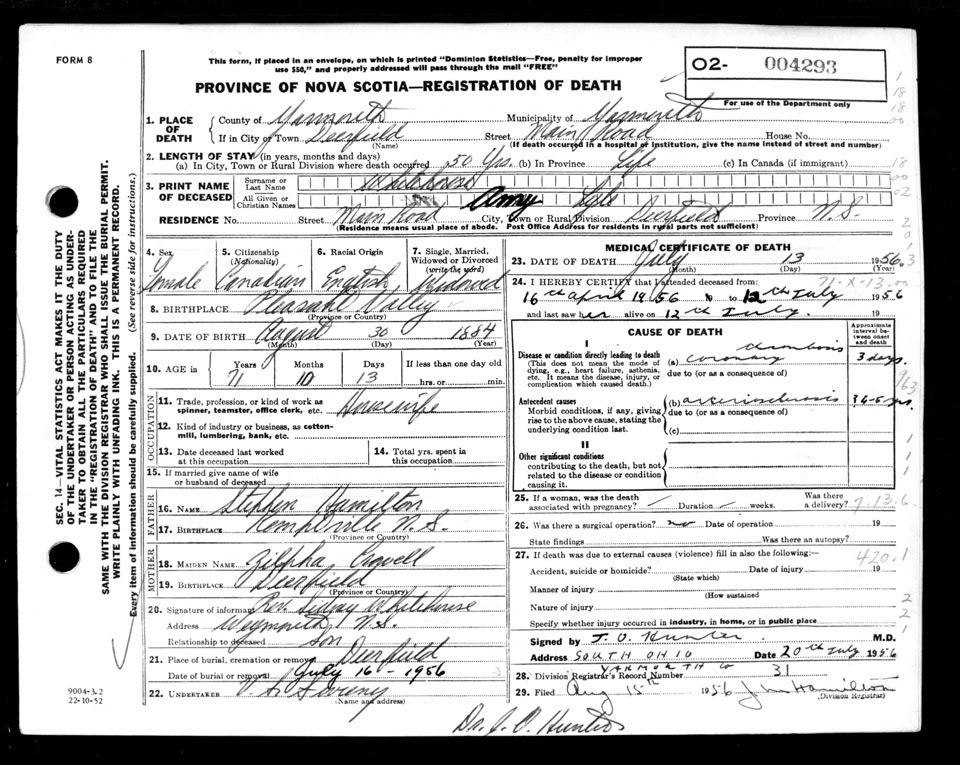 FORM 8
This form, if placed in an envelope, on which is printed "Dominion Statistics—Free, penalty for improper
use $50," and properly addressed will pass through the mail "FREE"
O2- 004293
For use of the Department only
PROVINCE OF NOVA SCOTIA—REGISTRATION OF DEATH
SEC. 14—VITAL STATISTICS ACT MAKES IT THE DUTY
OF THE UNDERTAKER OR PERSON ACTING AS UNDER-
TAKER TO OBTAIN ALL THE PARTICULARS REQUIRED
IN THE "REGISTRATION OF DEATH" AND TO FILE THE
SAME WITH THE DIVISION REGISTRAR WHO SHALL ISSUE THE BURIAL PERMIT.
WRITE PLAINLY WITH UNFADING INK. THIS IS A PERMANENT RECORD.
Every item of information should be carefully supplied. (See reverse side for instructions.)
1. PLACE OF DEATH County of Yarmouth Municipality of Yarmouth
If in City or Town Deerfield Street Main Road House No.
(Name) (If death occurred in a hospital or institution, give the name instead of street and number)
2. LENGTH OF STAY (in years, months and days)
(a) In City, Town or Rural Division where death occurred 50 Yrs. (b) In Province Life (c) In Canada (if immigrant)
3. PRINT NAME OF DECEASED
Surname or Last Name Whitehouse
All Given or Christian Names Amy
RESIDENCE No. Street Main Road City, Town or Rural Division Deerfield Province N.S.
(Residence means usual place of abode. Post Office Address for residents in rural parts not sufficient)
4. Sex Female
5. Citizenship (Nationality) Canadian
6. Racial Origin English
7. Single, Married, Widowed or Divorced (write the word) Widowed
8. BIRTHPLACE Pleasant Valley
(Province or Country)
9. DATE OF BIRTH August 30 1884
(Month) (Day) (Year)
10. AGE in Years Months Days If less than one day old
71 10 13 hrs. or min.
OCCUPATION
11. Trade, profession, or kind of work as
spinner, teamster, office clerk, etc. Housewife
12. Kind of industry or business, as cotton-
mill, lumbering, bank, etc.
13. Date deceased last worked at this occupation
14. Total yrs. spent in this occupation
15. If married give name of wife
or husband of deceased
FATHER
16. NAME Stephen Hamilton
17. BIRTHPLACE Kemptville N.S.
(Province or Country)
MOTHER
18. MAIDEN NAME Zilpha Crowell
19. BIRTHPLACE Deerfield
(Province or Country)
20. Signature of informant Rev. Sidney Whitehouse
Address Weymouth N.S.
Relationship to deceased son
21. Place of burial, cremation or removal Deerfield
Date of burial or removal July 16 - 1956
22. UNDERTAKER
(Name and address)
9004-3.2
22-10-52
MEDICAL CERTIFICATE OF DEATH
23. DATE OF DEATH July 13 1956
(Month) (Day) (Year)
24. I HEREBY CERTIFY that I attended deceased from:
71-X-13
16th april 1956 to 12th July 1956
and last saw her alive on 12th July. 19
CAUSE OF DEATH
Approximate interval between onset and death
I
Disease or condition directly leading to death
(This does not mean the mode of
dying, e.g., heart failure, asthenia,
etc. It means the disease, injury, or
complication which caused death.)
(a) coronary thrombosis 3 days.
due to (or as a consequence of)
Antecedent causes
Morbid conditions, if any, giving
rise to the above cause, stating the
underlying condition last.
(b) arteriosclerosis yrs.
due to (or as a consequence of)
(c)
II
Other significant conditions
contributing to the death, but not
related to the disease or condition
causing it.
25. If a woman, was the death
associated with pregnancy? Duration weeks. Was there a delivery?
7.13.6
26. Was there a surgical operation? no Date of operation 19
State findings Was there an autopsy?
27. If death was due to external causes (violence) fill in also the following:
420.1
Accident, suicide or homicide? Date of injury 19
(State which)
Manner of injury
(How sustained
Nature of injury
Specify whether injury occurred in industry, in home, or in public place
Signed by J. O. Hunter M.D.
Address SOUTH OHIO Date 20th July 1956
YARMOUTH CO
28. Division Registrar's Record Number 31
29. Filed Aug 15th 1956 J M Hamilton
(Division Registrar)
Dr. J. O. Hunter